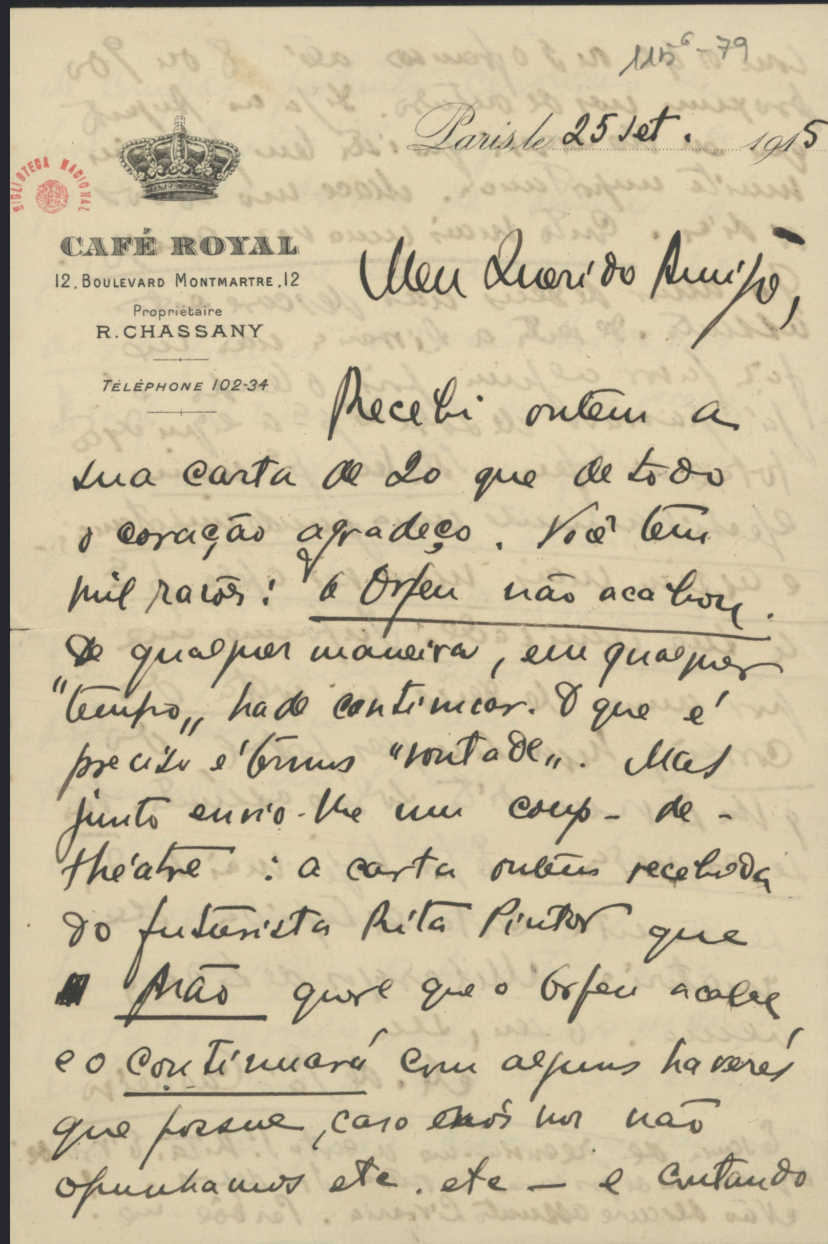 115⁶-79
Paris, le 25 Set. 1915
BIBLIOTECA NACIONAL
CAFÉ ROYAL
12, BOULEVARD MONTMARTRE, 12
Propriétaire
R. CHASSANY
TÉLÉPHONE 102-34
Meu Querido Amigo,
Recebi ontem a
sua carta de 20 que de todo
o coração agradeço. Você tem
mil razões: o Orfeu não acabou.
De qualquer maneira, em qualquer
"tempo" hade continuar. O que é
preciso é termos "vontade". Mas
junto envio-lhe um coup-de-
théatre: a carta ontem recebida
do futurista Rita Pintor que
não quere que o Orfeu acabe
e o continuará com alguns haveres
que possue, caso nós nos não
oponhamos etc. etc — e contando